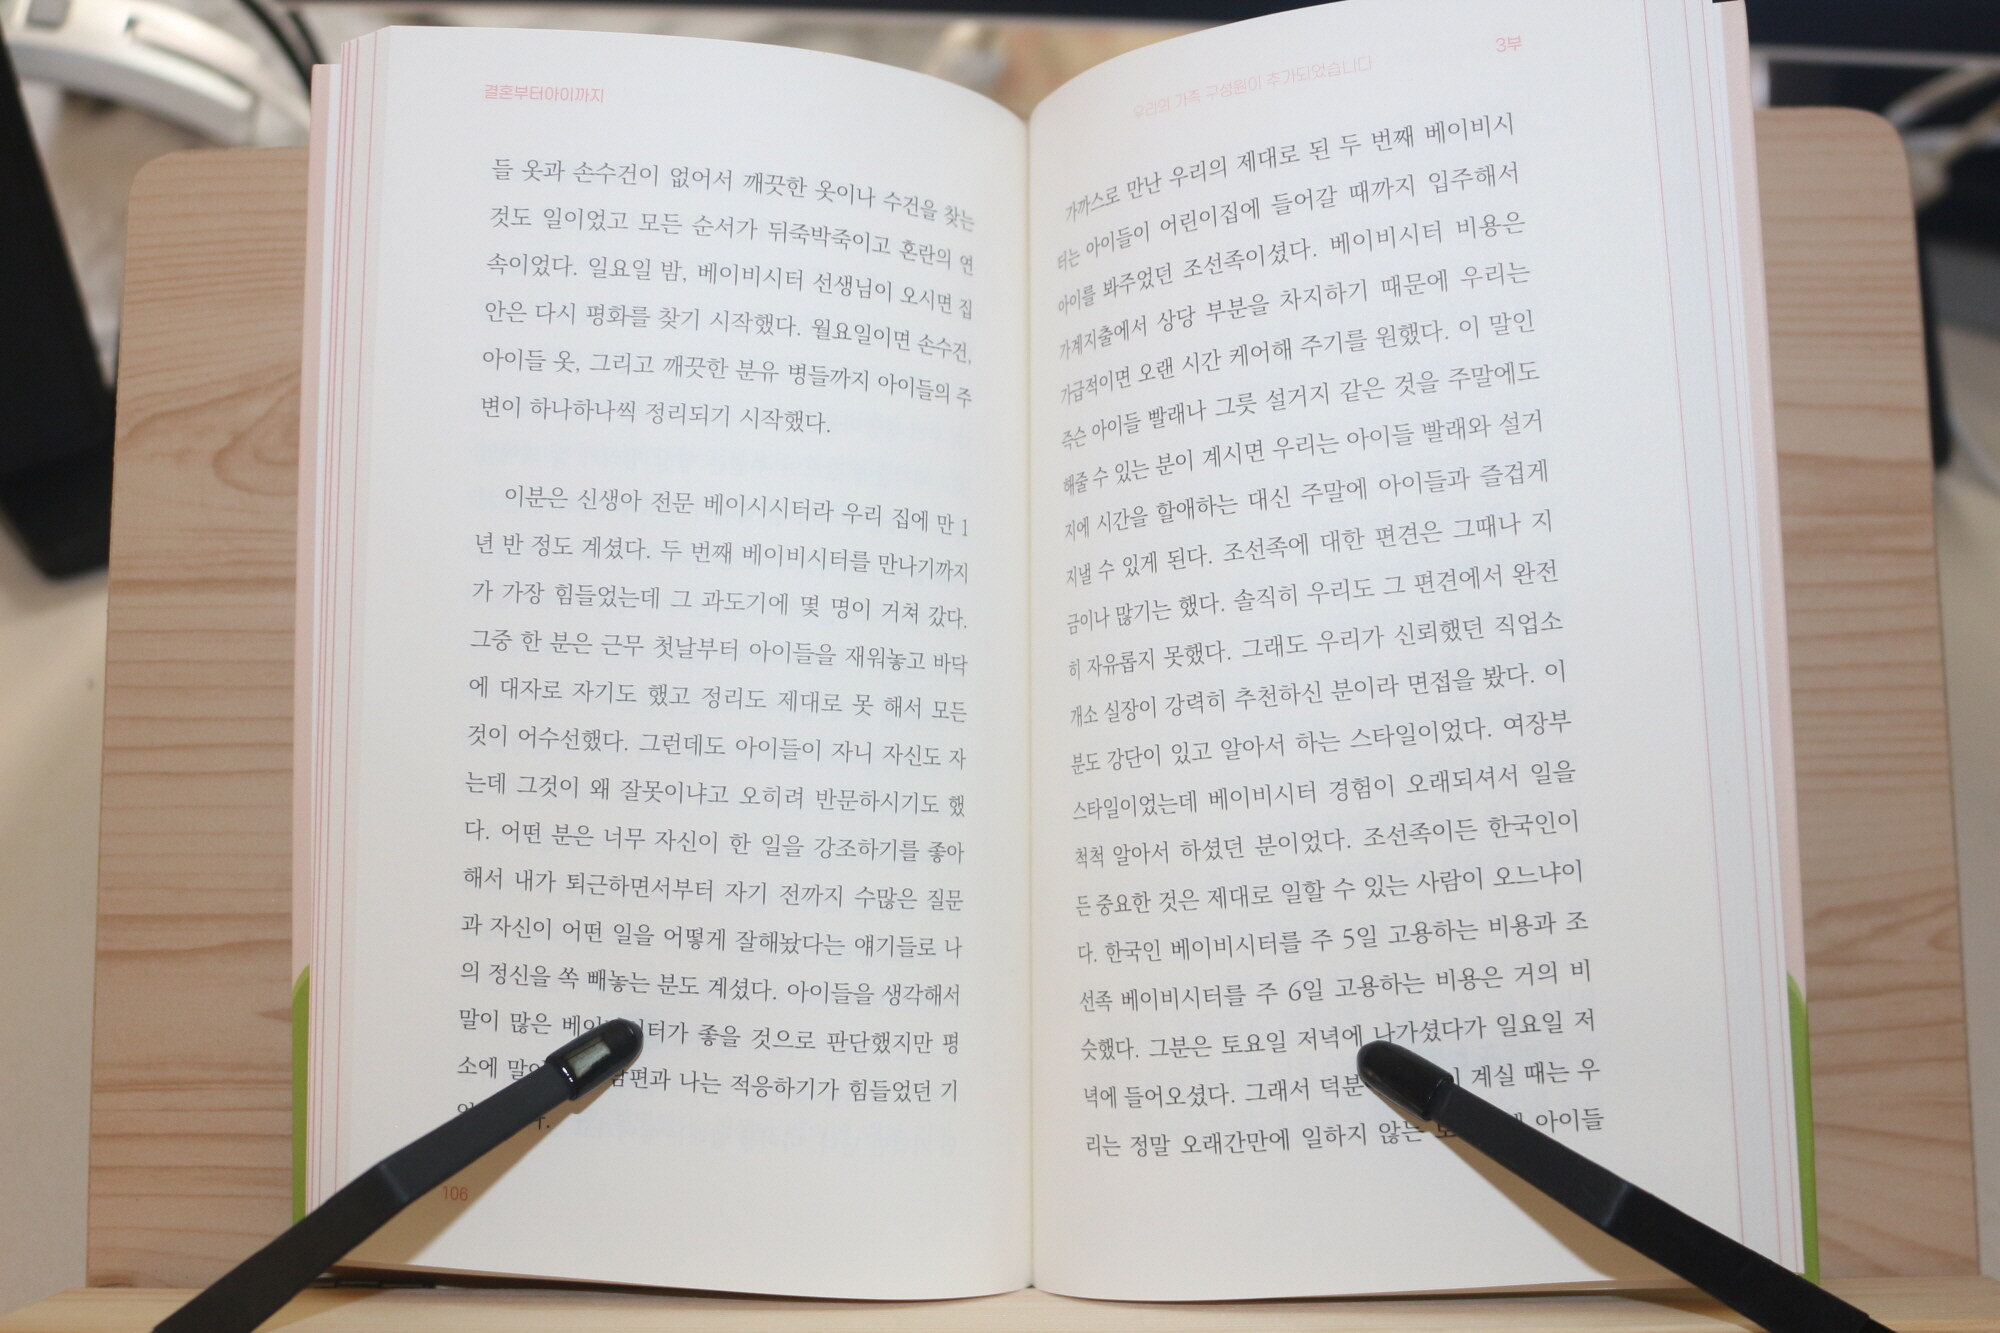 결혼부터아이까지
들 옷과 손수건이 없어서 깨끗한 옷이나 수건을 찾는
것도 일이었고 모든 순서가 뒤죽박죽이고 혼란의 연
속이었다. 일요일 밤, 베이비시터 선생님이 오시면 집
안은 다시 평화를 찾기 시작했다. 월요일이면 손수건,
아이들 옷, 그리고 깨끗한 분유 병들까지 아이들의 주
변이 하나하나씩 정리되기 시작했다.
이분은 신생아 전문 베이시시터라 우리 집에 만 1
년 반 정도 계셨다. 두 번째 베이비시터를 만나기까지
가 가장 힘들었는데 그 과도기에 몇 명이 거쳐 갔다.
그중 한 분은 근무 첫날부터 아이들을 재워놓고 바닥
에 대자로 자기도 했고 정리도 제대로 못 해서 모든
것이 어수선했다. 그런데도 아이들이 자니 자신도 자
는데 그것이 왜 잘못이냐고 오히려 반문하시기도 했
다. 어떤 분은 너무 자신이 한 일을 강조하기를 좋아
해서 내가 퇴근하면서부터 자기 전까지 수많은 질문
과 자신이 어떤 일을 어떻게 잘해놨다는 얘기들로 나
의 정신을 쏙 빼놓는 분도 계셨다. 아이들을 생각해서
말이 많은 좋을 것으로 판단했지만 평
소에 나는 적응하기가 힘들었던 기
106
우리의 가족 구성원이 추가되었습니다
3부
가까스로 만난 우리의 제대로 된 두 번째 베이비시
터는 아이들이 어린이집에 들어갈 때까지 입주해서
아이를 봐주었던 조선족이셨다. 베이비시터 비용은
가계지출에서 상당 부분을 차지하기 때문에 우리는
가급적이면 오랜 시간 케어해 주기를 원했다. 이 말인
즉슨 아이들 빨래나 그릇 설거지 같은 것을 주말에도
해줄 수 있는 분이 계시면 우리는 아이들 빨래와 설거
지에 시간을 할애하는 대신 주말에 아이들과 즐겁게
지낼 수 있게 된다. 조선족에 대한 편견은 그때나 지
금이나 많기는 했다. 솔직히 우리도 그 편견에서 완전
히 자유롭지 못했다. 그래도 우리가 신뢰했던 직업소
개소 실장이 강력히 추천하신 분이라 면접을 봤다. 이
분도 강단이 있고 알아서 하는 스타일이었다. 여장부
스타일이었는데 베이비시터 경험이 오래되셔서 일을
척척 알아서 하셨던 분이었다. 조선족이든 한국인이
든 중요한 것은 제대로 일할 수 있는 사람이 오느냐이
다. 한국인 베이비시터를 주 5일 고용하는 비용과 조
선족 베이비시터를 주 6일 고용하는 비용은 거의 비
슷했다. 그분은 토요일 저녁에 나가셨다가 일요일 저
녁에 들어오셨다. 그래서 계실 때는 우
리는 정말 오래간만에 일하지 않는 아이들